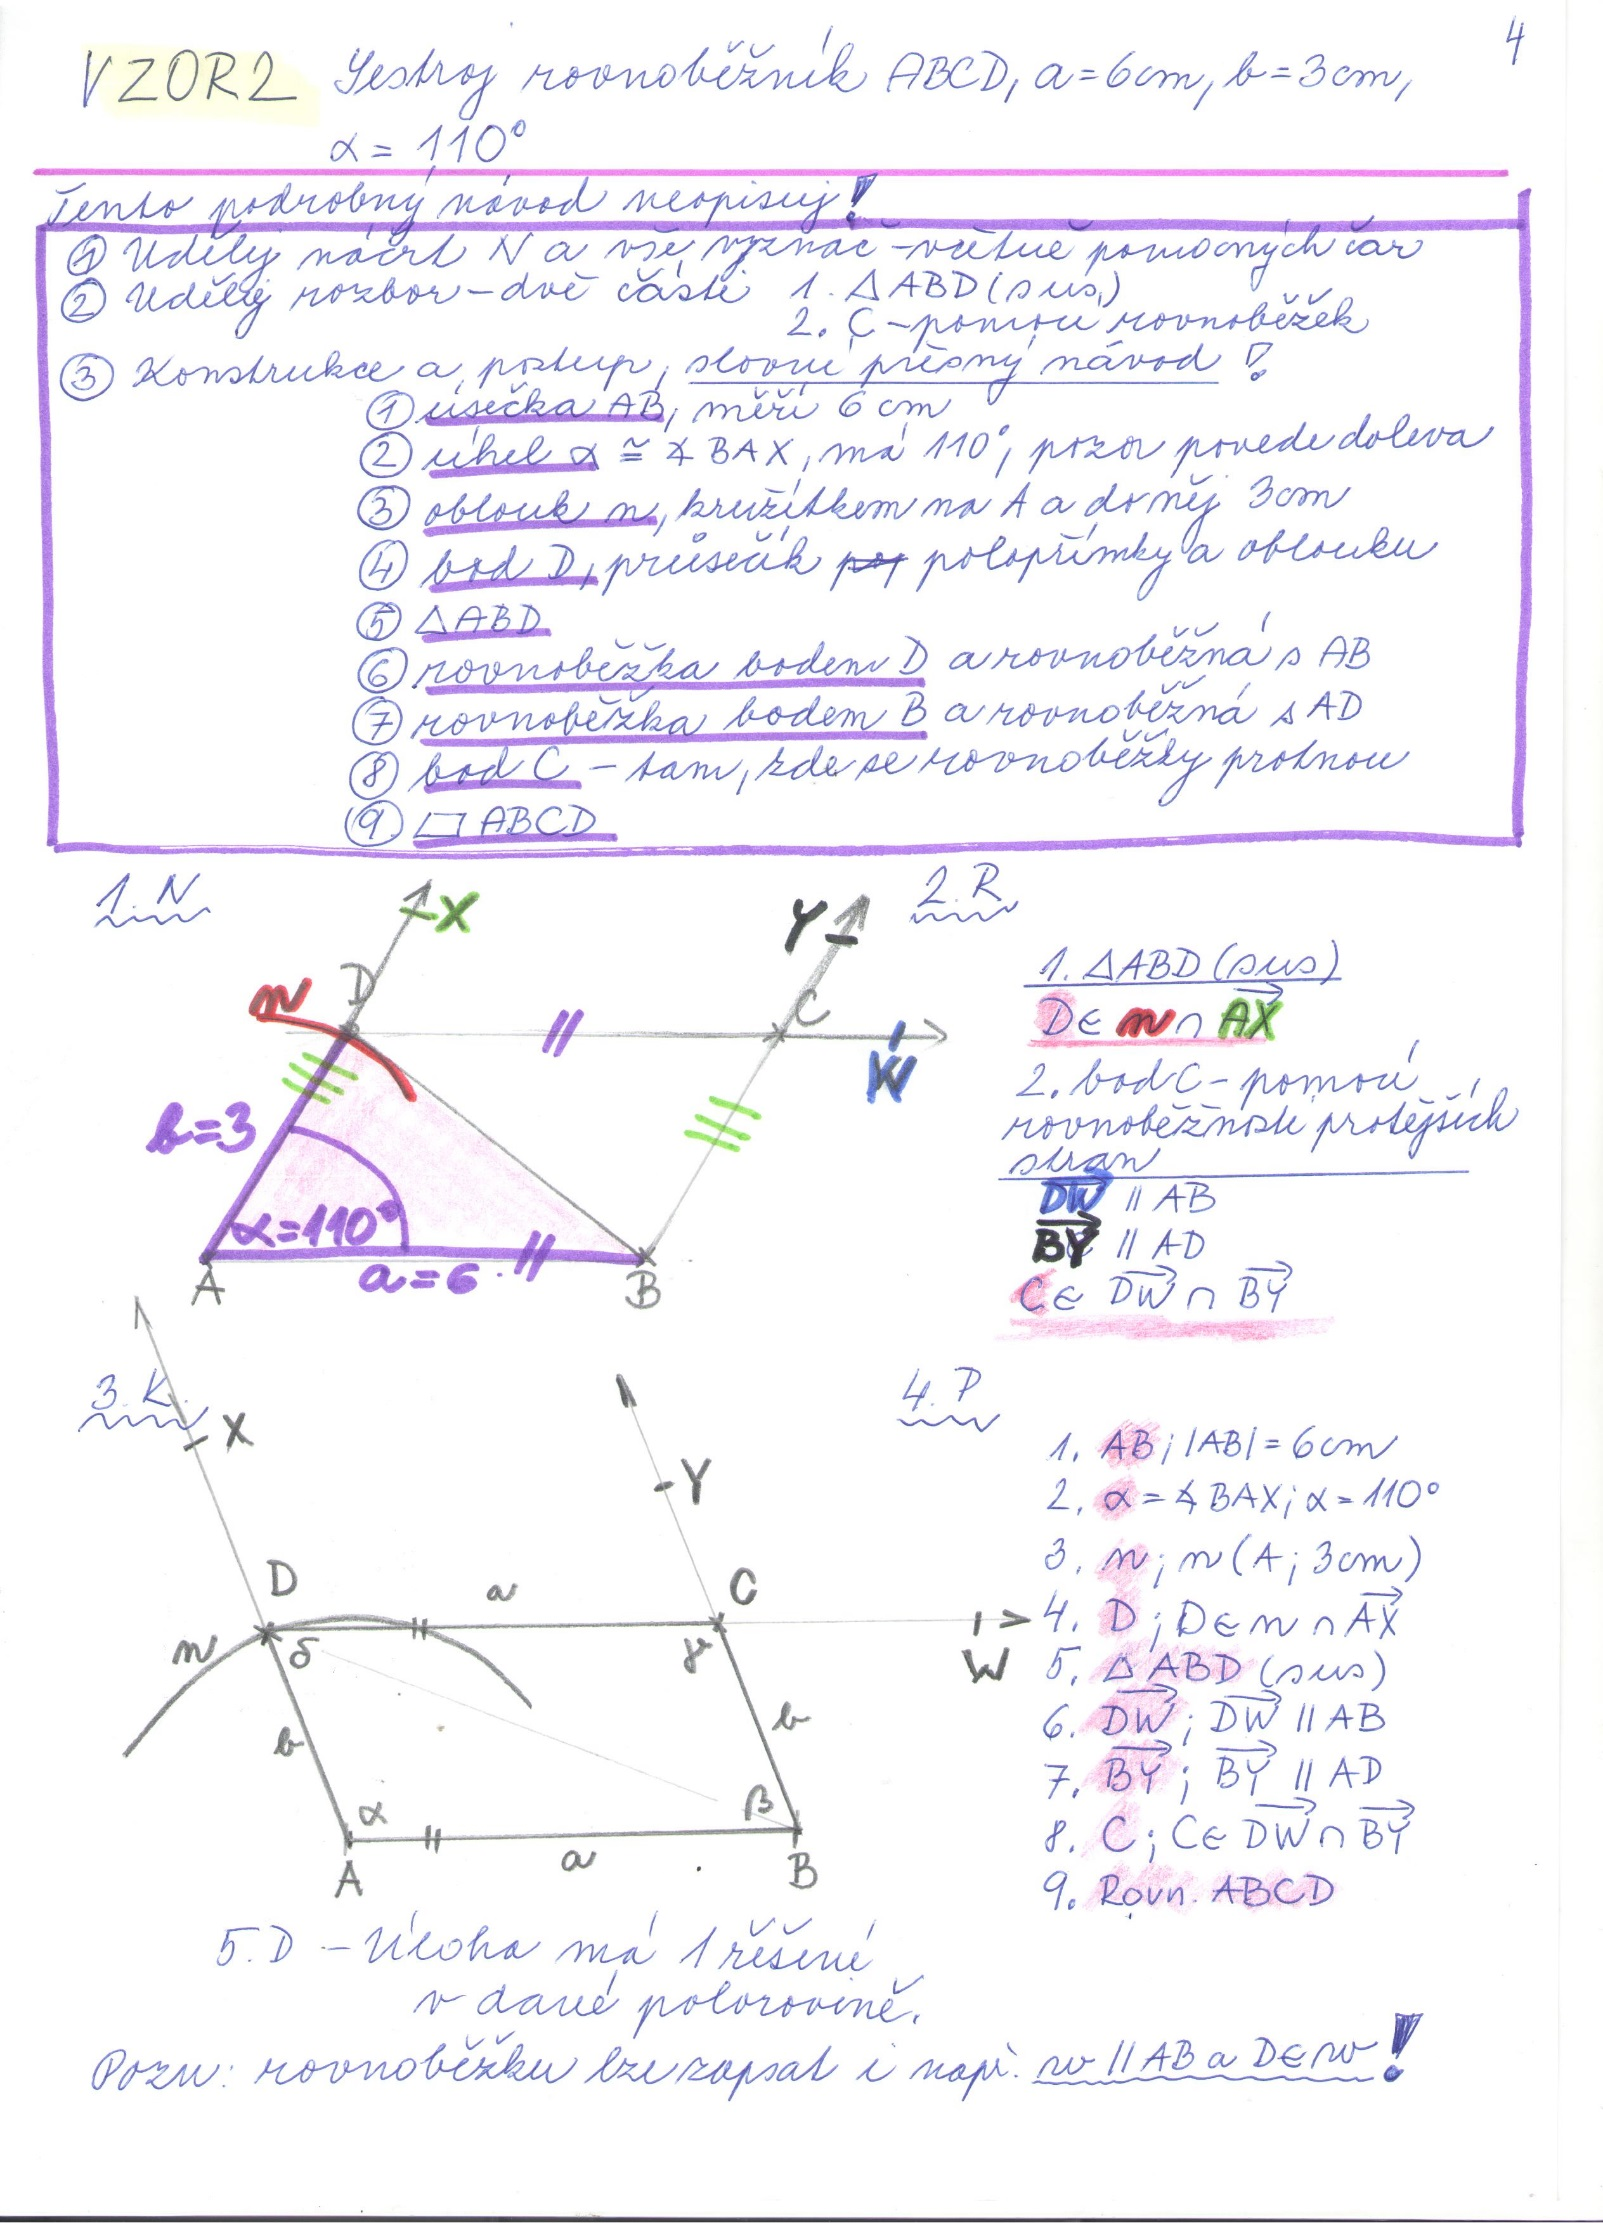 4
VZOR2 Sestroj rovnoběžník ABCD, a=6cm, b=3cm,
α = 110°
Tento podrobný návod neopisuj!
① Udělej náčrt N a vše vyznač - včetně pomocných čar
② Udělej rozbor - dvě části 1. △ABD (sus)
2. C - pomocí rovnoběžek
③ Konstrukce a postup, slovní přesný návod !
① úsečka AB, měří 6 cm
② úhel α ≅ ∢ BAX, má 110°, pozor povede doleva
③ oblouk n, kružítkem na A a do něj 3cm
④ bod D, průsečík polopřímky a oblouku
⑤ △ABD
⑥ rovnoběžka bodem D a rovnoběžná s AB
⑦ rovnoběžka bodem B a rovnoběžná s AD
⑧ bod C - tam, kde se rovnoběžky protnou
⑨ ▱ ABCD
1. N
X
Y
D
n
C
W
b=3
α=110°
a=6
A
B
2. R
1. △ABD (sus)
D∈ n ∩ AX
2. bod C - pomocí
rovnoběžnosti protějších
stran
DW ∥ AB
BY ∥ AD
C∈ DW ∩ BY
3. K
X
Y
D
a
C
n
δ
γ
W
b
b
α
β
A
a
B
4. P
1. AB; |AB| = 6cm
2. α = ∢ BAX; α = 110°
3. n; n (A; 3cm)
4. D; D∈ n ∩ AX
5. △ ABD (sus)
6. DW; DW ∥ AB
7. BY; BY ∥ AD
8. C; C∈ DW ∩ BY
9. Rovn. ABCD
5. D - Úloha má 1 řešení
v dané polorovině.
Pozn: rovnoběžku lze zapsat i např. w ∥ AB a D∈w !